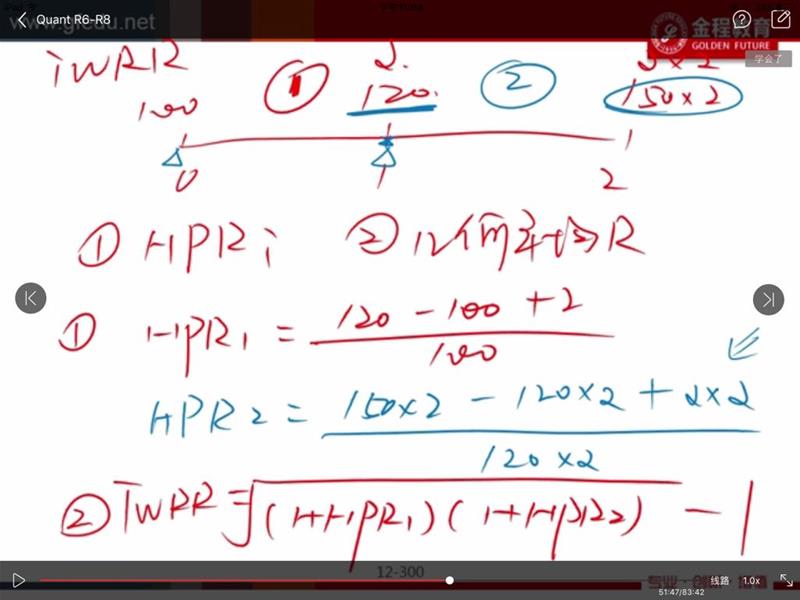 Quant R6-R8
www.gfedu.net
金程教育
GOLDEN FUTURE
学会了
TWRR
100
①
2.
120.
②
150×2
0
1
2
① HPRi ② 几何平均R
① HPR₁ = 120 - 100 + 2
100
HPR₂ = 150×2 - 120×2 + 2×2
120×2
② TWRR = √(1+HPR₁)(1+HPR₂) - 1
12-300
专业·创新·增值
线路
1.0x
51:47/83:42